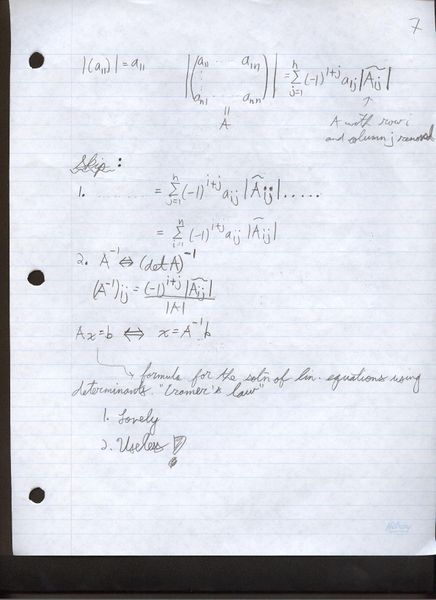 7
|(a₁₁)| = a₁₁
|(a₁₁ ... a₁ₙ
⋮
aₙ₁ ... aₙₙ)| = Σⱼ₌₁ⁿ (-1)¹⁺ʲ a₁ⱼ |Ã₁ⱼ|
=
A
↑
A with row i
and column j removed
Skip:
1. ........ = Σⱼ₌₁ⁿ (-1)ⁱ⁺ʲ aᵢⱼ |Ãᵢⱼ| .....
= Σᵢ₌₁ⁿ (-1)ⁱ⁺ʲ aᵢⱼ |Ãᵢⱼ|
2. A⁻¹ ⇔ (det A)⁻¹
(A⁻¹)ᵢⱼ = (-1)ⁱ⁺ʲ |Ãᵢⱼ| / |A|
Ax = b ⇔ x = A⁻¹b
→ formula for the sol'n of lin. equations using
determinants. "Cramer's law"
1. Lovely
2. Useless!
Hilroy